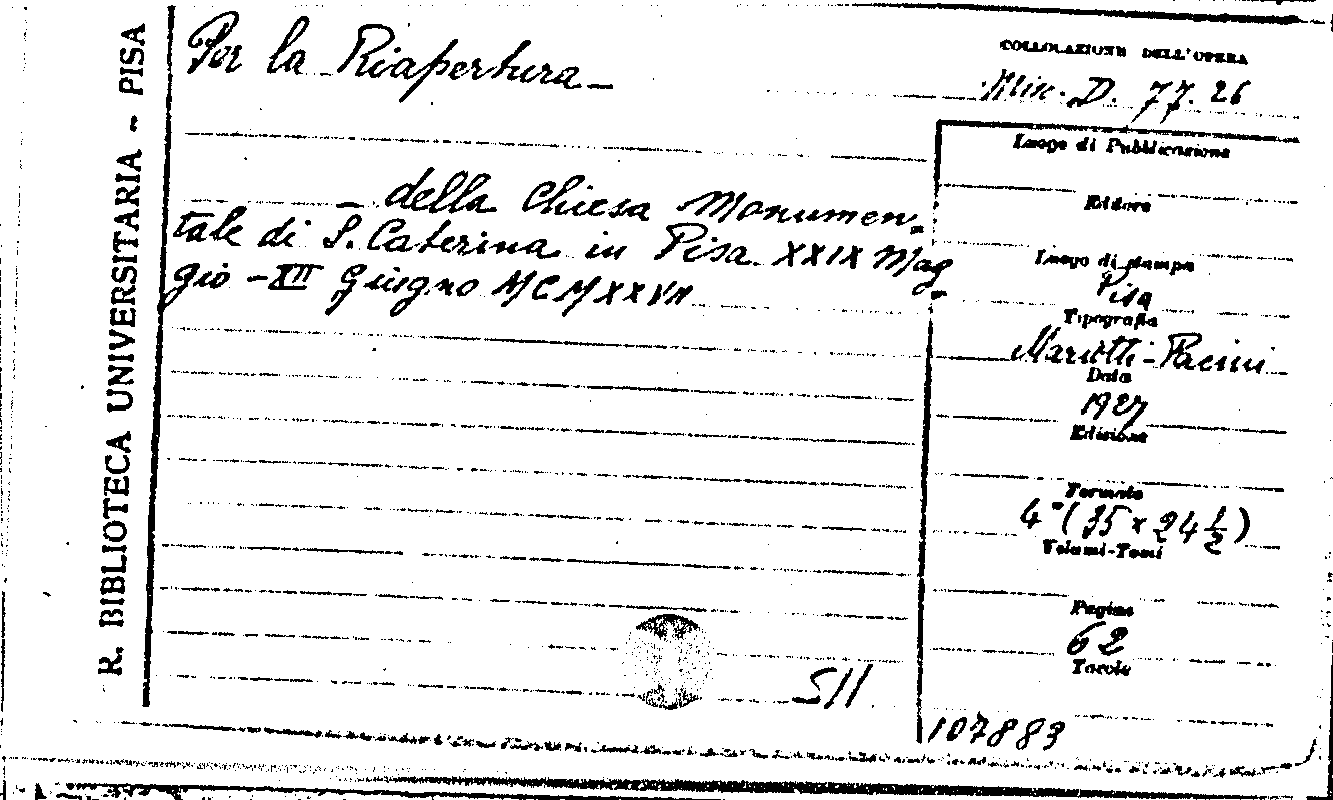 R. BIBLIOTECA UNIVERSITARIA - PISA
Per la Riapertura -
- della Chiesa Monumen-
tale di S. Caterina in Pisa XXIX Mag-
gio - XII Giugno MCMXXVII
COLLOCAZIONE DELL'OPERA
Misc. D. 77. 26
Luogo di Pubblicazione
Editore
Luogo di stampa
Pisa
Tipografia
Mariotti-Pacini
Data
1927
Edizione
Formato
4° (35 x 24 1/2)
Volumi-Tomi
Pagine
62
Tavole
S11
107883